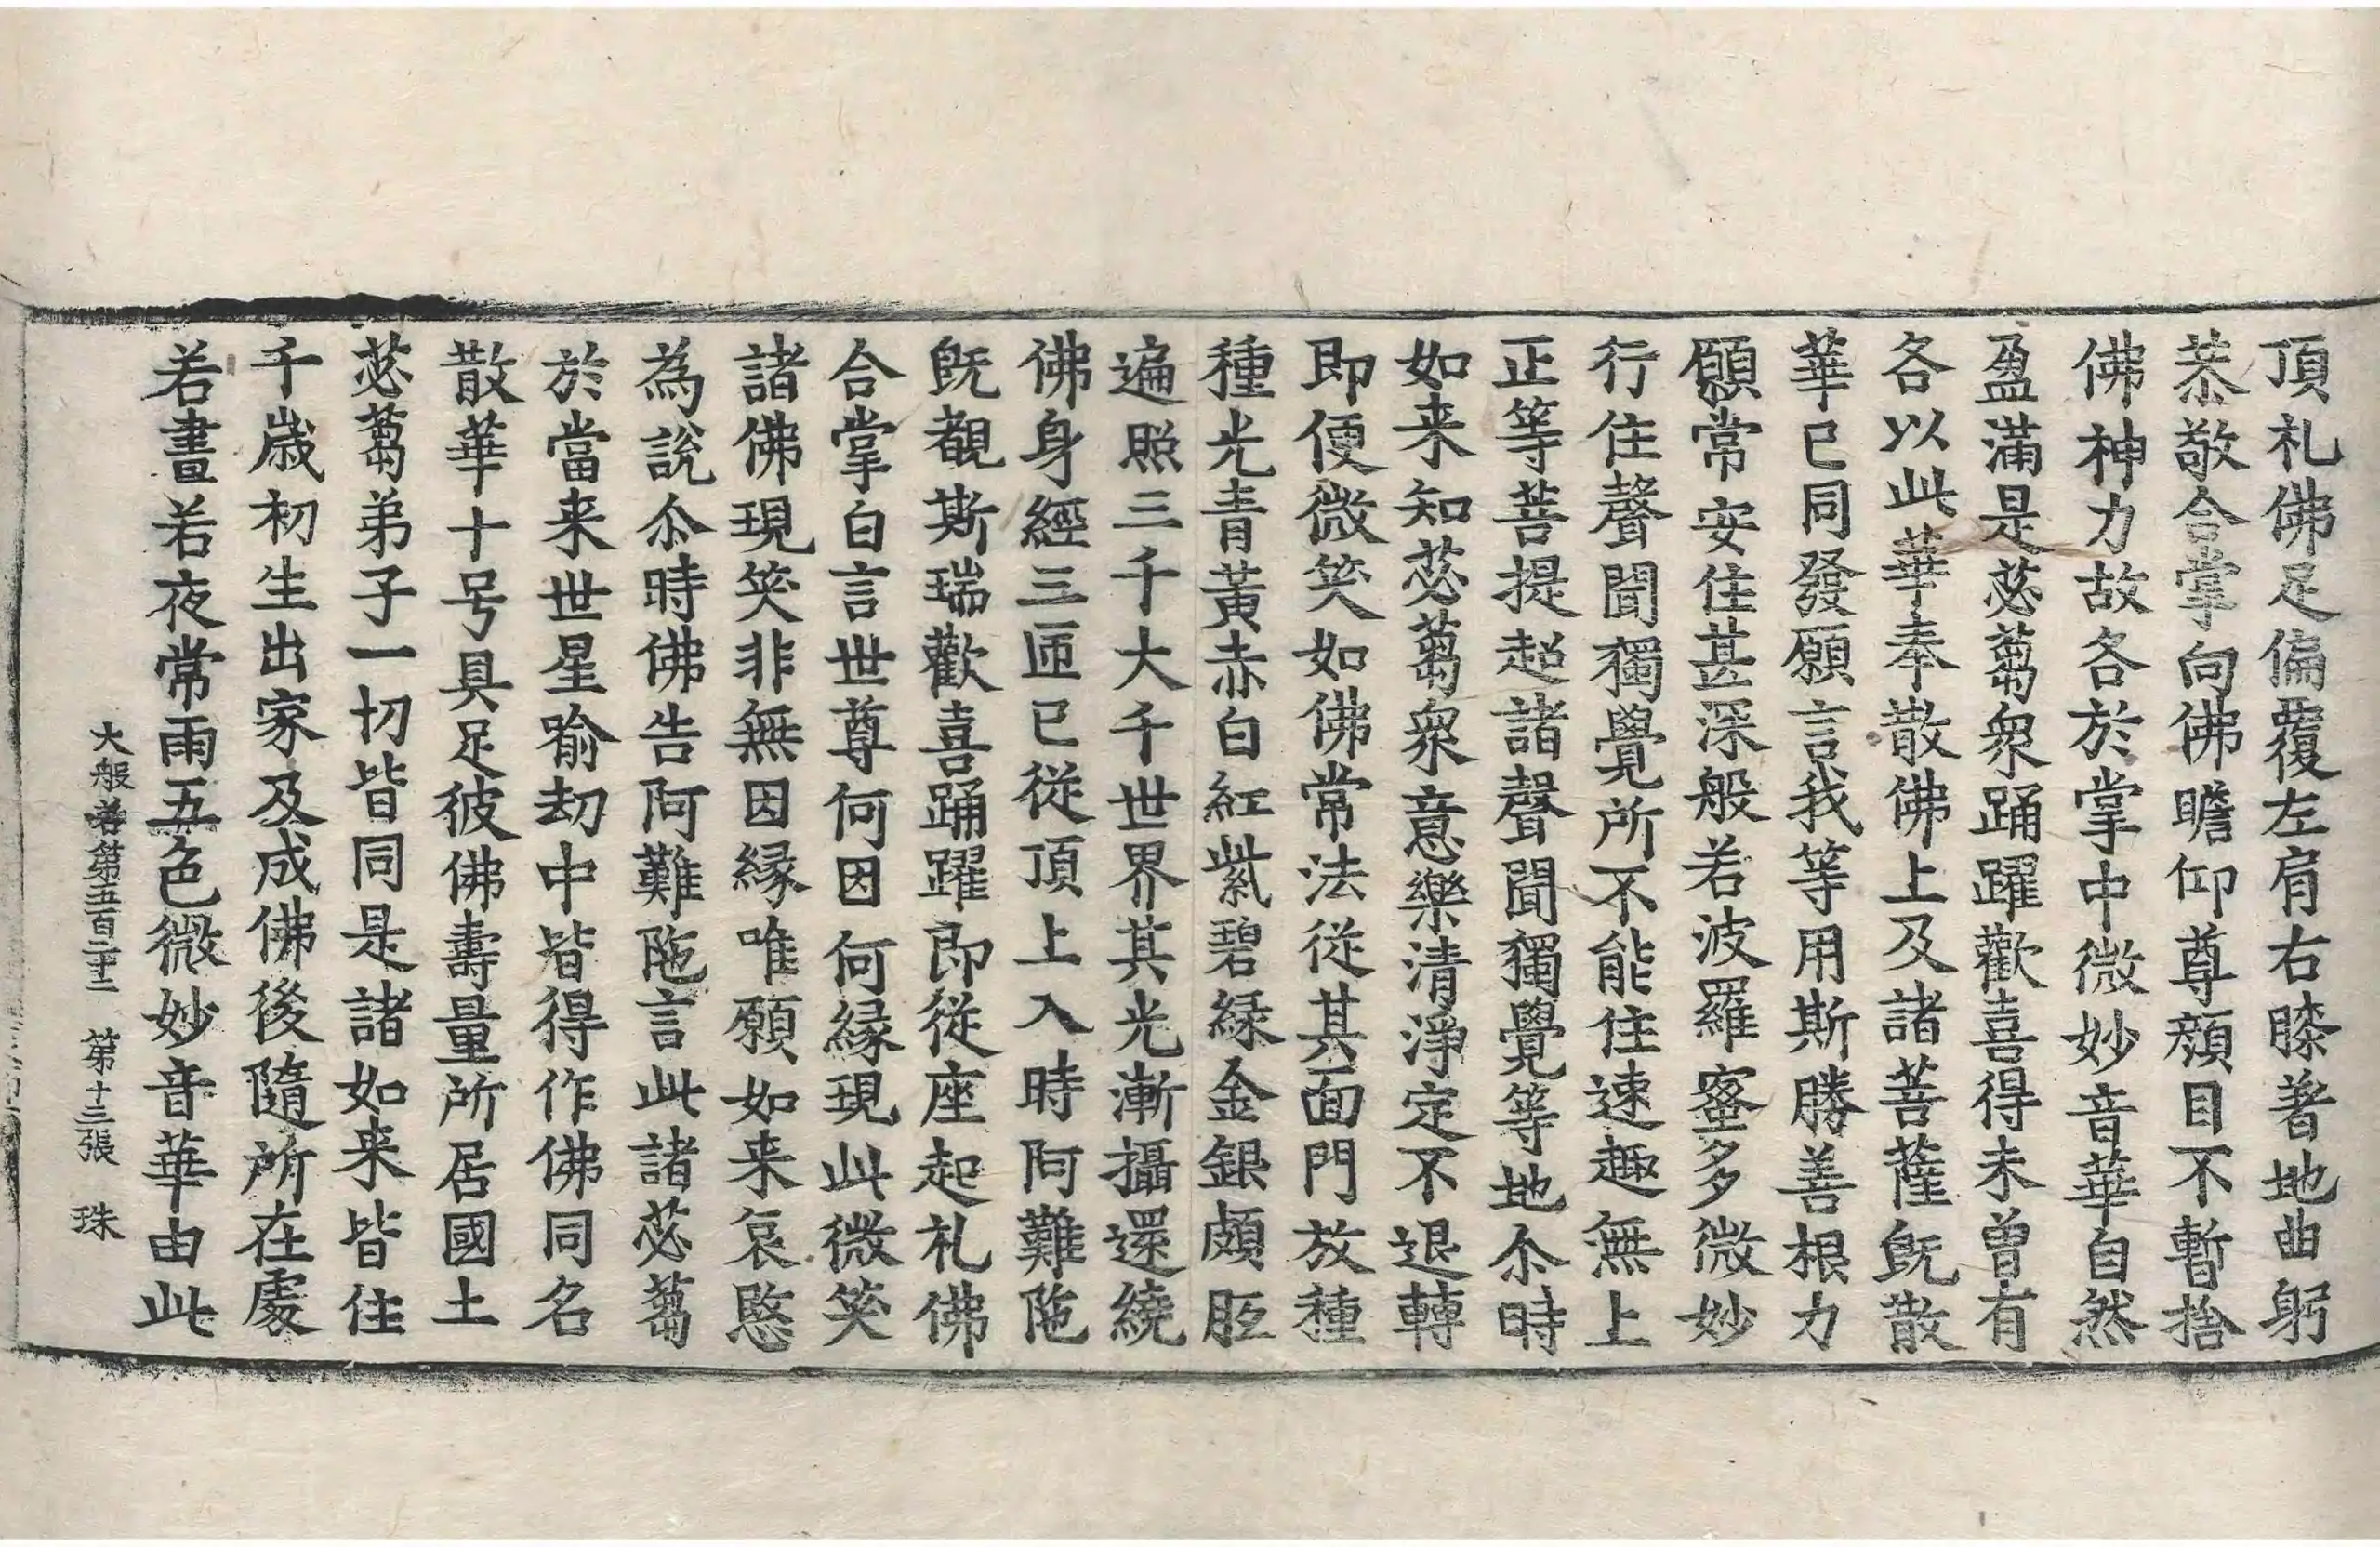 頂礼佛足偏覆左肩右膝著地曲躬
恭敬合掌向佛瞻仰尊顔目不暫捨
佛神力故各於掌中微妙音華自然
盈滿是苾蒭衆踊躍歡喜得未曾有
各以此華奉散佛上及諸菩薩旣散
華已同發願言我等用斯勝善根力
願常安住甚深般若波羅蜜多微妙
行住聲聞獨覺所不能住速趣無上
正等菩提超諸聲聞獨覺等地尒時
如来知苾蒭衆意樂清淨定不退轉
即便微笑如佛常法從其面門放種
種光青黃赤白紅紫碧緑金銀頗胝
遍照三千大千世界其光漸攝還繞
佛身經三匝已從頂上入時阿難陁
旣覩斯瑞歡喜踊躍即從座起礼佛
合掌白言世尊何因何緣現此微笑
諸佛現笑非無因緣唯願如来哀愍
為說尒時佛告阿難陁言此諸苾蒭
於當来世星喻劫中皆得作佛同名
散華十号具足彼佛壽量所居國土
苾蒭弟子一切皆同是諸如来皆住
千歳初生出家及成佛後隨所在處
若晝若夜常雨五色微妙音華由此
大般若第五百二十二 第十三張 珠